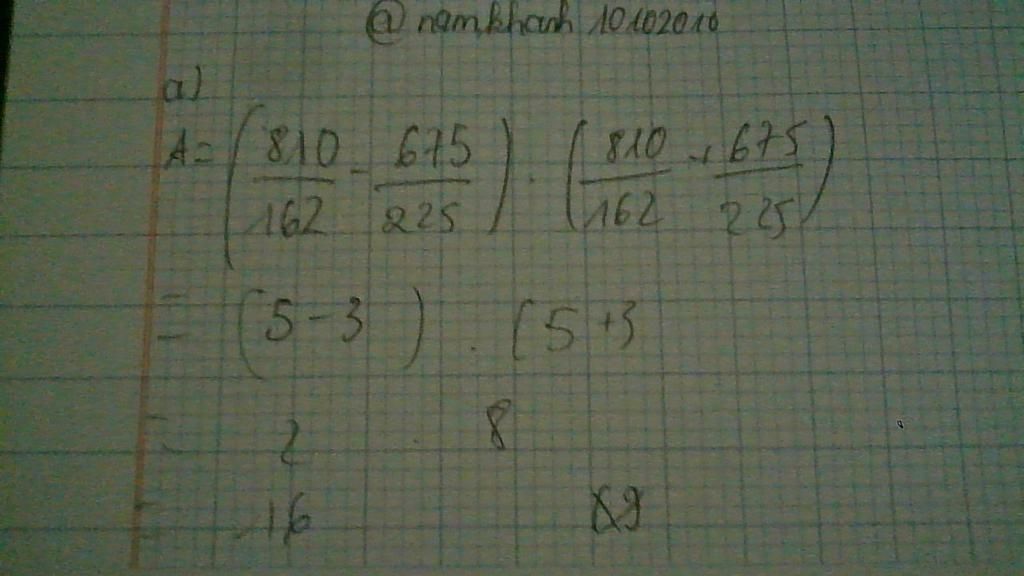 @namkhanh 10102010
a)
A = (810/162 - 675/225) . (810/162 + 675/225)
= (5 - 3) . (5 + 3
= 2 . 8
= 16